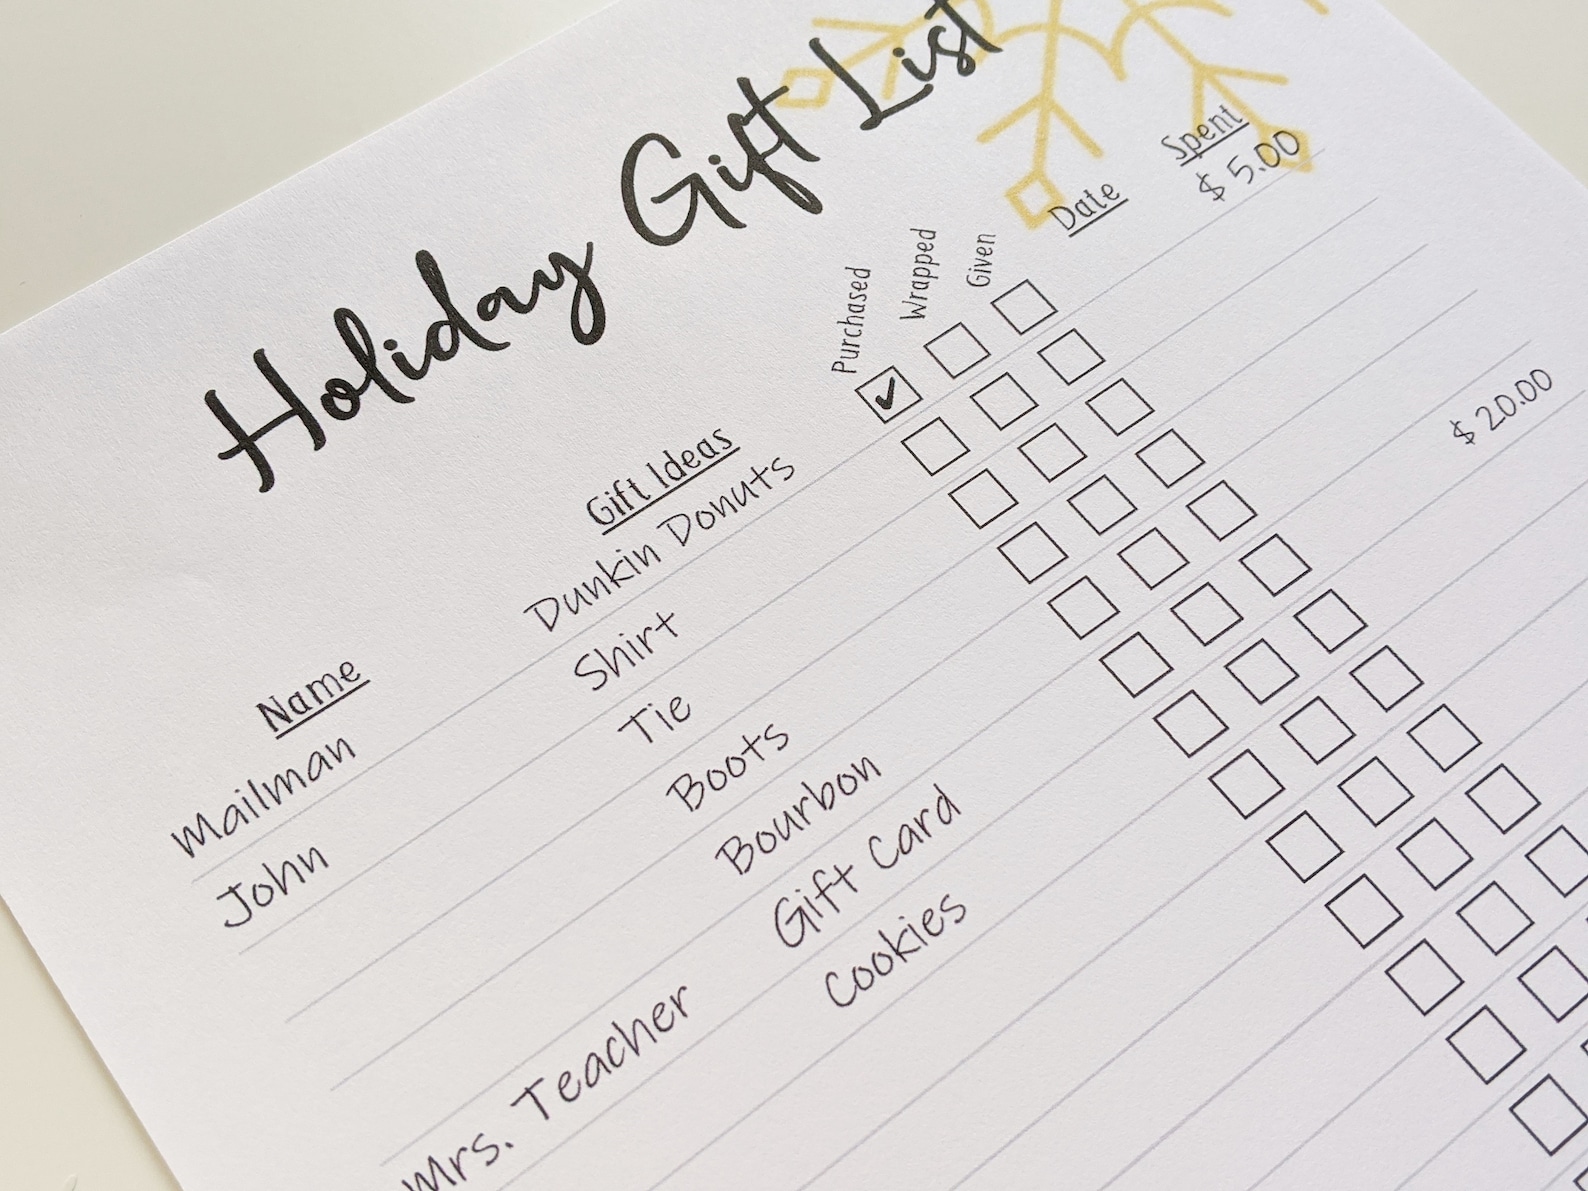 Holiday Gift List
Name Gift Ideas Purchased Wrapped Given Date Spent
Mailman Dunkin Donuts ✓ $ 5.00
John Shirt
Tie
Boots
Bourbon
Mrs. Teacher Gift Card $ 20.00
Cookies